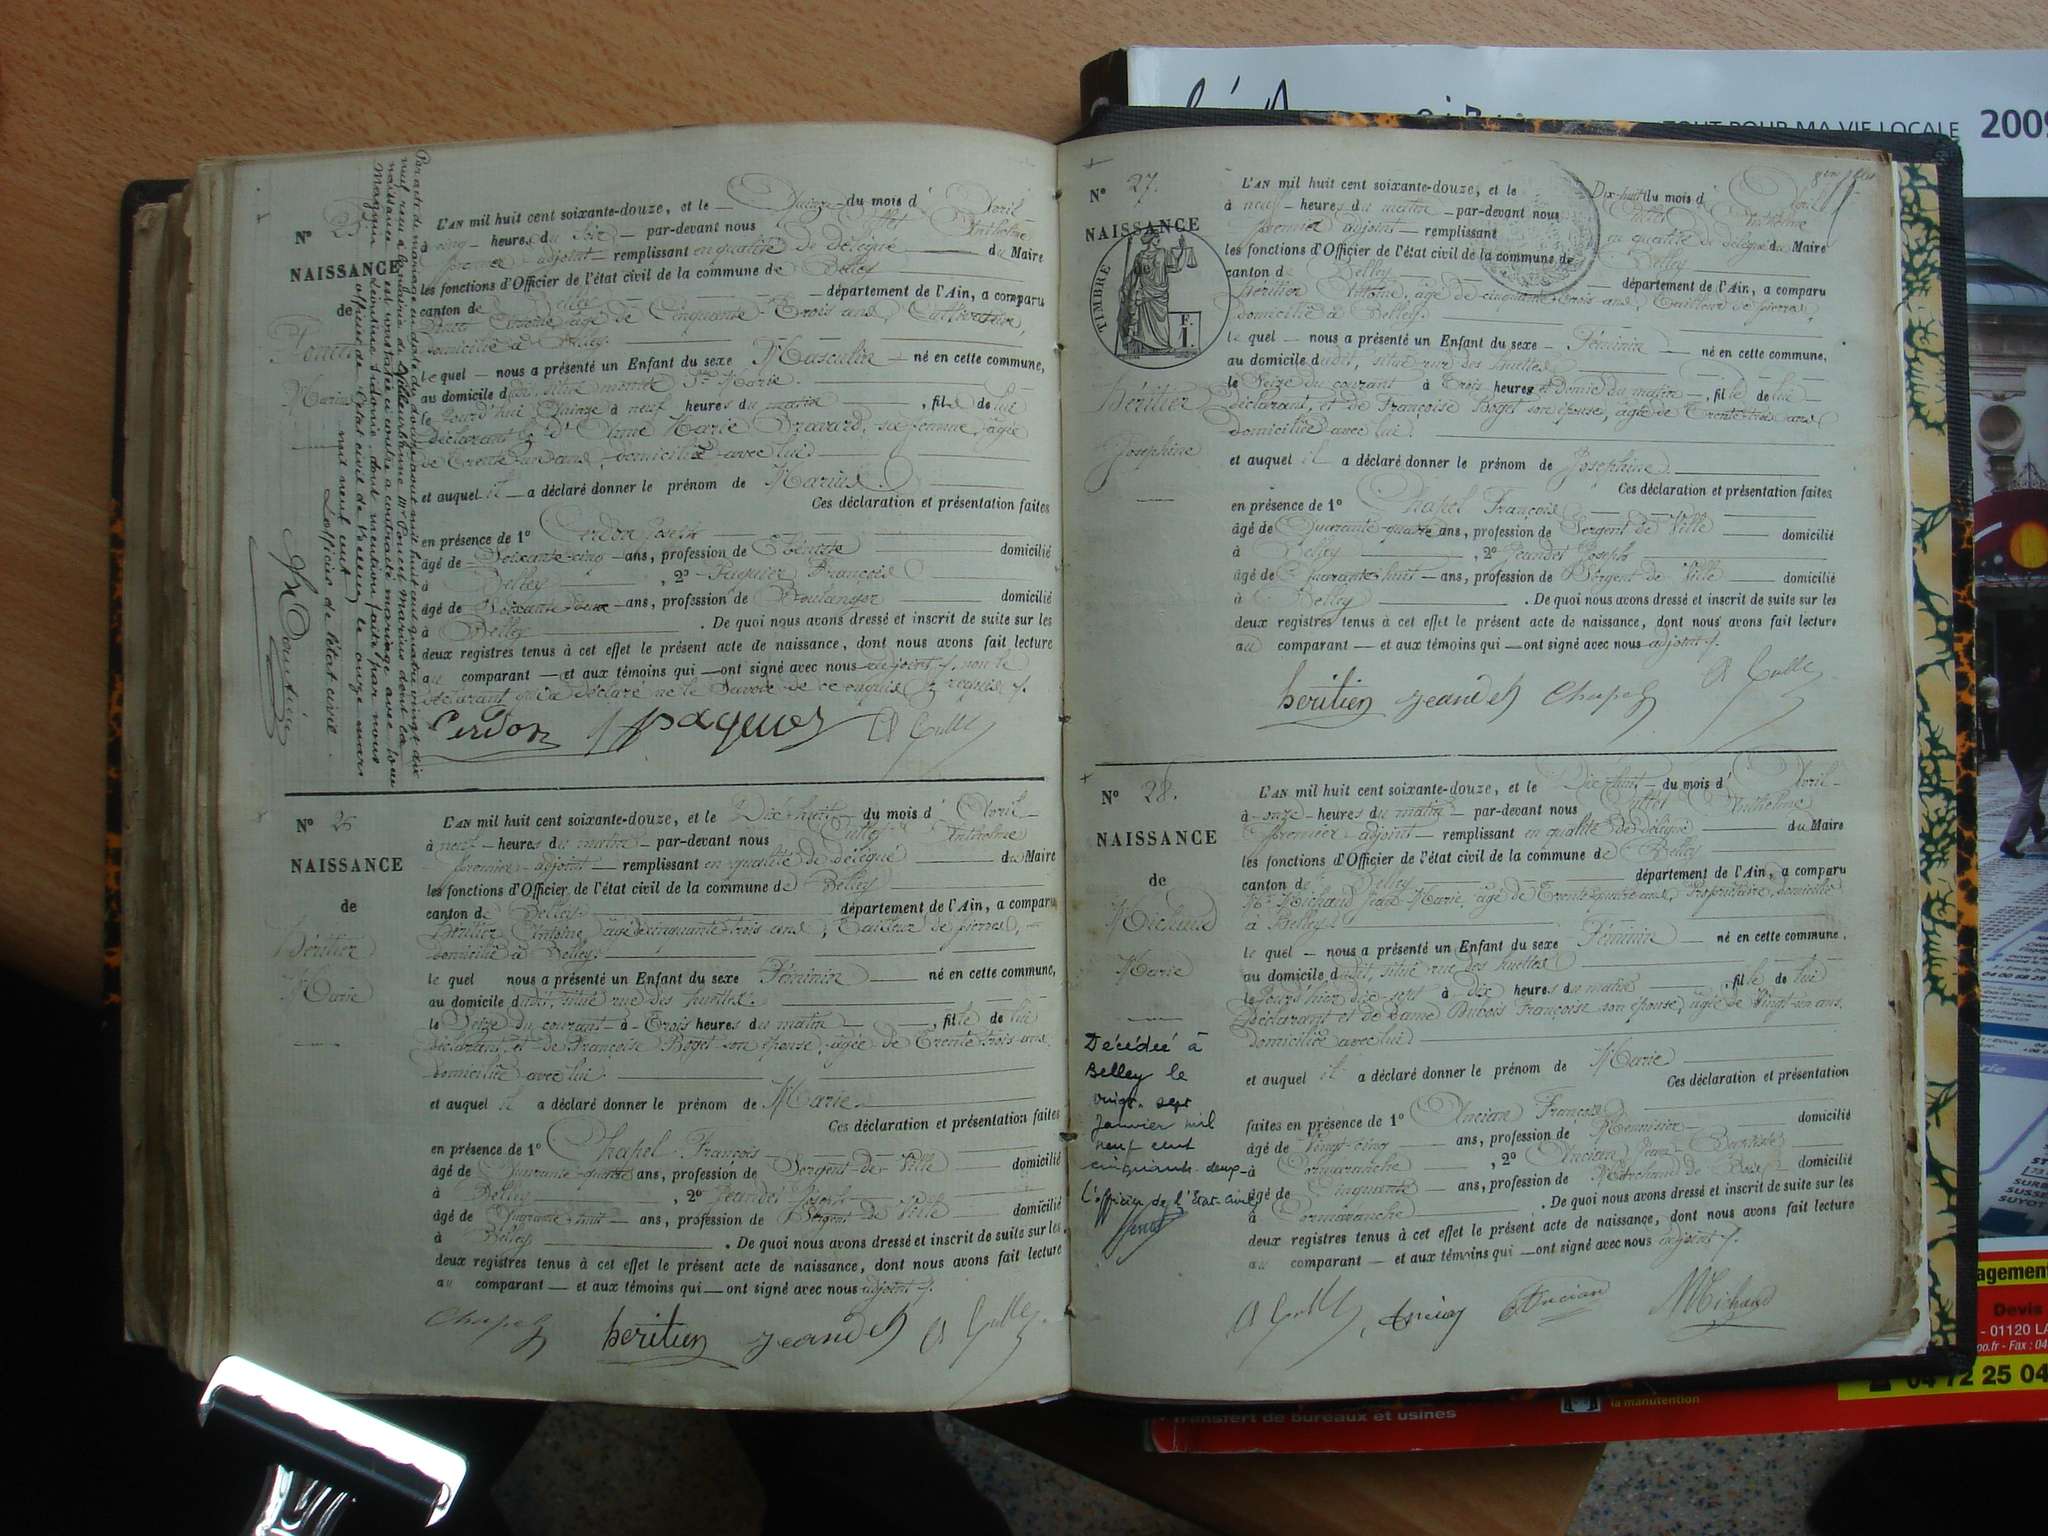 N° 25
NAISSANCE
de
Poncet
Marius
L'AN mil huit cent soixante-douze, et le Quinze du mois d'Avril
à cinq heures du soir par-devant nous Culler Anthelme
premier adjoint remplissant en qualité de délégué du Maire
les fonctions d'Officier de l'état civil de la commune de Belley
canton de Belley département de l'Ain, a comparu
Antoine âgé de Cinquante-Trois ans, Cultivateur,
domicilié à Belley.
le quel nous a présenté un Enfant du sexe Masculin né en cette commune,
au domicile dudit, situé Ste Marie.
le jourd'hui Quinze à neuf heures du matin, fils de lui
déclarant et d'Anne Marie Bravard, sa femme, âgée
de Trente-un ans, domiciliée avec lui
et auquel il a déclaré donner le prénom de Marius.
Ces déclaration et présentation faites
en présence de 1° Cerdon Joseph
âgé de Soixante-cinq ans, profession de Ebéniste domicilié
à Belley, 2° François
âgé de Soixante-deux ans, profession de Boulanger domicilié
à Belley. De quoi nous avons dressé et inscrit de suite sur les
deux registres tenus à cet effet le présent acte de naissance, dont nous avons fait lecture
au comparant et aux témoins qui ont signé avec nous adjoint, non le
déclarant qui a déclaré ne le savoir de ce enquis & requis
Cerdon A Culler
Par acte de mariage en date du douze août mil huit cent quatre vingt dix
huit reçu à la mairie de Villeurbanne Mr Poncet Marius dont la
naissance est constatée ci contre a contracté mariage avec
Magnin Léontine Sidonie dont mention faite par nous
officier de l'état civil de Belley le onze mars
mil neuf cent
L'officier de l'état civil.
N° 26
NAISSANCE
de
Héritier
Marie
L'AN mil huit cent soixante-douze, et le Dix-huit du mois d'Avril
à neuf heures du matin par-devant nous Culler Anthelme
premier adjoint remplissant en qualité de délégué du Maire
les fonctions d'Officier de l'état civil de la commune de Belley
canton de Belley département de l'Ain, a comparu
Héritier Antoine, âgé de cinquante-trois ans, Tailleur de pierres,
domicilié à Belley.
le quel nous a présenté un Enfant du sexe Féminin né en cette commune,
au domicile dudit, situé rue des huelles.
le Seize du courant à Trois heures du matin, fille de lui
déclarant, et de Françoise Boget son épouse, âgée de Trente-trois ans,
domiciliée avec lui
et auquel il a déclaré donner le prénom de Marie.
Ces déclaration et présentation faites
en présence de 1° Chapel François
âgé de Quarante-quatre ans, profession de Sergent de Ville domicilié
à Belley, 2° Jeandet Joseph
âgé de Quarante-huit ans, profession de Sergent de Ville domicilié
à Belley. De quoi nous avons dressé et inscrit de suite sur les
deux registres tenus à cet effet le présent acte de naissance, dont nous avons fait lecture
au comparant et aux témoins qui ont signé avec nous adjoint
Chapel heritier jeandet A Culler
N° 27.
NAISSANCE
TIMBRE
F.
1.
Héritier
Josephine
L'AN mil huit cent soixante-douze, et le Dix-huit du mois d'Avril
à neuf heures du matin par-devant nous Culler Anthelme
premier adjoint remplissant en qualité de délégué du Maire
les fonctions d'Officier de l'état civil de la commune de Belley
canton de Belley département de l'Ain, a comparu
Héritier Antoine, âgé de cinquante-trois ans, Tailleur de pierres,
domicilié à Belley.
le quel nous a présenté un Enfant du sexe Féminin né en cette commune,
au domicile dudit, situé rue des huelles
le Seize du courant à Trois heures et Demie du matin, fille de lui
déclarant, et de Françoise Boget son épouse, âgée de Trente-trois ans
domiciliée avec lui.
et auquel il a déclaré donner le prénom de Josephine.
Ces déclaration et présentation faites
en présence de 1° Chapel François
âgé de Quarante-quatre ans, profession de Sergent de Ville domicilié
à Belley, 2° Jeandet Joseph
âgé de Quarante-huit ans, profession de Sergent de Ville domicilié
à Belley. De quoi nous avons dressé et inscrit de suite sur les
deux registres tenus à cet effet le présent acte de naissance, dont nous avons fait lecture
au comparant et aux témoins qui ont signé avec nous adjoint
heritier jeandet Chapel A Culler
N° 28.
NAISSANCE
de
Michaud
Marie
Décédée à
Belley le
vingt-sept
Janvier mil
neuf cent
cinquante-deux
L'officier de l'Etat-Civil
L'AN mil huit cent soixante-douze, et le Dix-huit du mois d'Avril
à onze heures du matin par-devant nous Culler Anthelme
premier adjoint remplissant en qualité de délégué du Maire
les fonctions d'Officier de l'état civil de la commune de Belley
canton de Belley département de l'Ain, a comparu
Mr Michaud Jean Marie, âgé de Trente-quatre ans, Propriétaire, domicilié
à Belley
le quel nous a présenté un Enfant du sexe Féminin né en cette commune,
au domicile dudit, situé rue des huelles
le jourd'hier dix-sept à dix heures du matin, fille de lui
Déclarant et de Dame Dubois Françoise son épouse, âgée de Vingt-un ans.
Domiciliée avec lui
et auquel il a déclaré donner le prénom de Marie
Ces déclaration et présentation
faites en présence de 1° Ancian François domicilié
âgé de Vingt-cinq ans, profession de Menuisier
à Cormaranche, 2° Ancian Jean-Baptiste domicilié
âgé de Cinquante ans, profession de Marchand de Bois
à Cormaranche. De quoi nous avons dressé et inscrit de suite sur les
deux registres tenus à cet effet le présent acte de naissance, dont nous avons fait lecture
au comparant et aux témoins qui ont signé avec nous adjoint
A Culler Ancian Ancian Michaud
TOUT POUR MA VIE LOCALE 2009
Transfert de bureaux et usines
la manutention
Devis
- 01120 LA
04 72 25 04